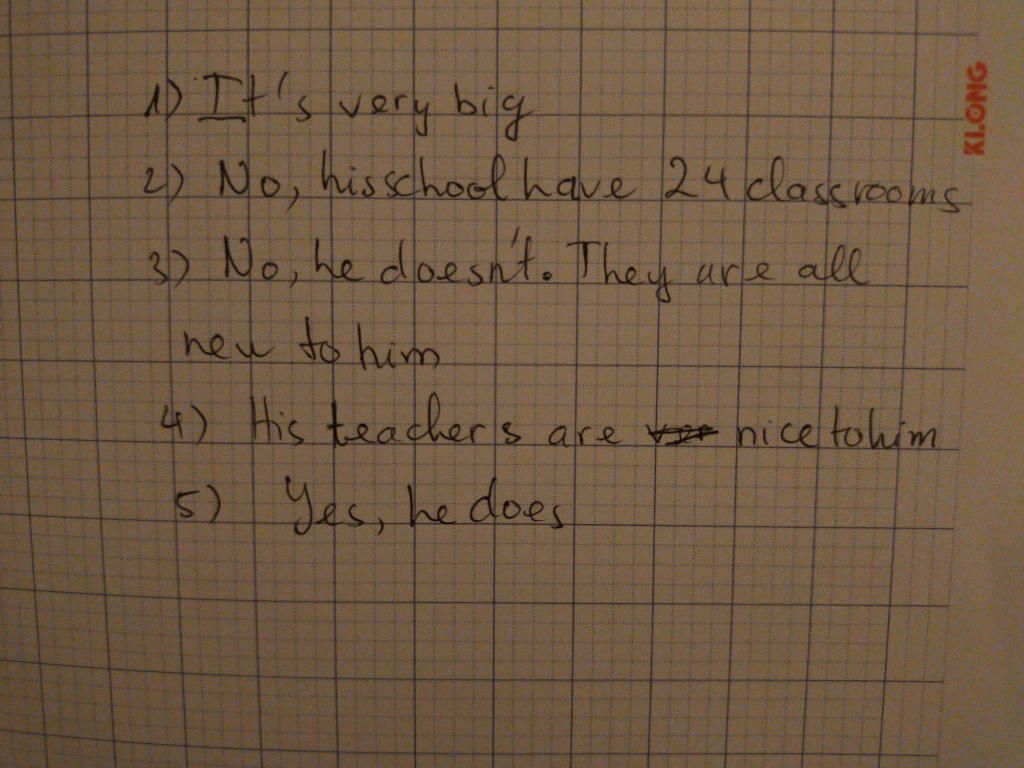 1) It's very big
2) No, his school have 24 classrooms
3) No, he doesn't. They are all
new to him
4) His teachers are nice to him
5) Yes, he does
KLONG